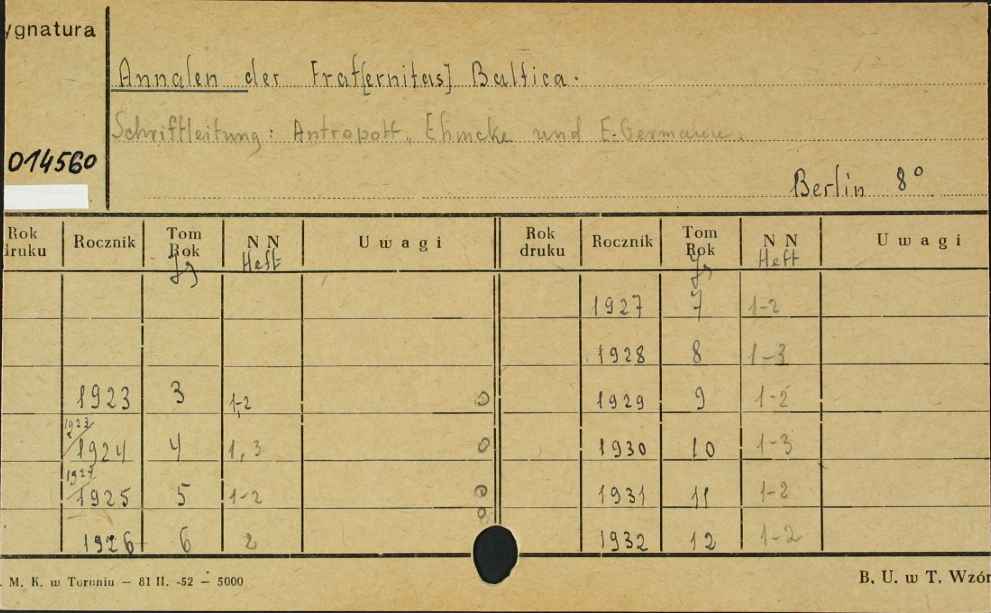 ygnatura
Annalen der Frat[ernitas] Baltica.
Schriftleitung: Antropoff, Ehmcke und E. Germann.
014560
Berlin 8°
Rok druku Rocznik Tom Rok Jg NN Heft Uwagi Rok druku Rocznik Tom Rok Jg NN Heft Uwagi
1927 7 1-2
1928 8 1-3
1923 3 1,2 0 1929 9 1-2
1923/1924 4 1,3 0 1930 10 1-3
1924/1925 5 1-2 0 1931 11 1-2
0
1926 6 2 1932 12 1-2
. M. K. w Toruniu — 81 II. -52 — 5000
B. U. w T. Wzór